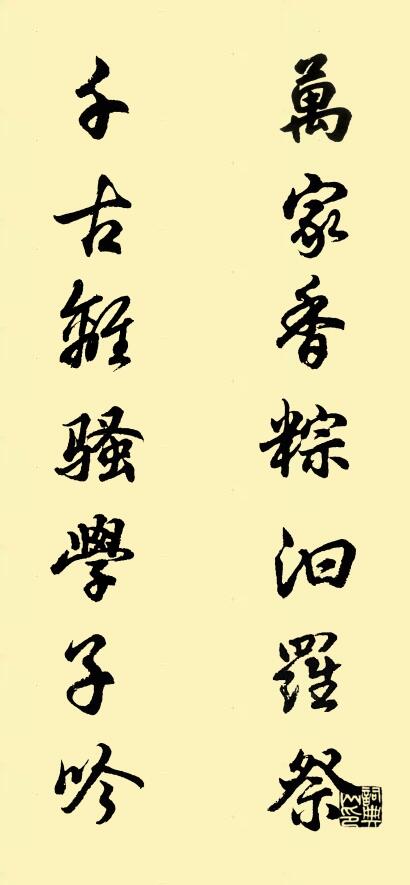 萬家香粽汨羅祭
千古離騷學子吟